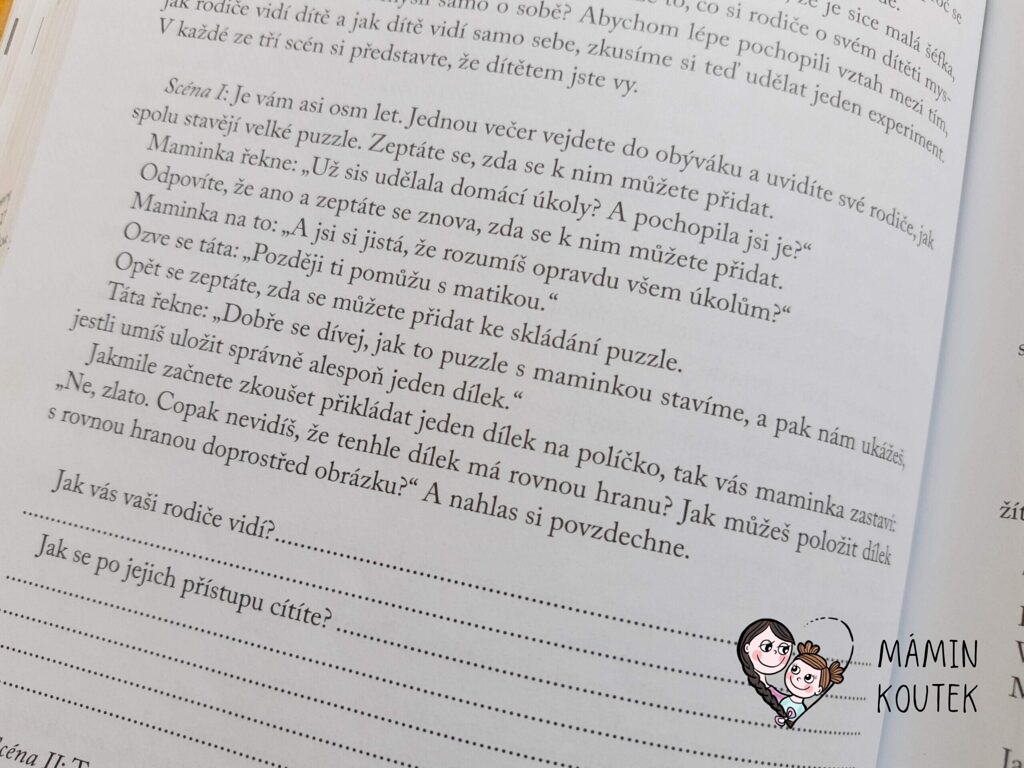 je sice malá šéfka,
to, co si rodiče o svém dítěti mys-
samo o sobě? Abychom lépe pochopili vztah mezi tím,
jak rodiče vidí dítě a jak dítě vidí samo sebe, zkusíme si teď udělat jeden experiment.
V každé ze tří scén si představte, že dítětem jste vy.
Scéna I: Je vám asi osm let. Jednou večer vejdete do obýváku a uvidíte své rodiče, jak
spolu stavějí velké puzzle. Zeptáte se, zda se k nim můžete přidat.
Maminka řekne: „Už sis udělala domácí úkoly? A pochopila jsi je?“
Odpovíte, že ano a zeptáte se znova, zda se k nim můžete přidat.
Maminka na to: „A jsi si jistá, že rozumíš opravdu všem úkolům?“
Ozve se táta: „Později ti pomůžu s matikou.“
Opět se zeptáte, zda se můžete přidat ke skládání puzzle.
Táta řekne: „Dobře se dívej, jak to puzzle s maminkou stavíme, a pak nám ukážeš,
jestli umíš uložit správně alespoň jeden dílek.“
Jakmile začnete zkoušet přikládat jeden dílek na políčko, tak vás maminka zastaví:
„Ne, zlato. Copak nevidíš, že tenhle dílek má rovnou hranu? Jak můžeš položit dílek
s rovnou hranou doprostřed obrázku?“ A nahlas si povzdechne.
Jak vás vaši rodiče vidí?
Jak se po jejich přístupu cítíte?
Scéna II:
MÁMIN
KOUTEK